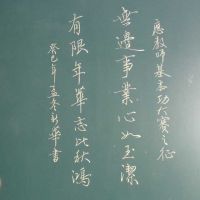 應教師基本功大賽之征
無邊事業心如玉潔
有限年華志比秋鴻
癸巳年孟冬新華書